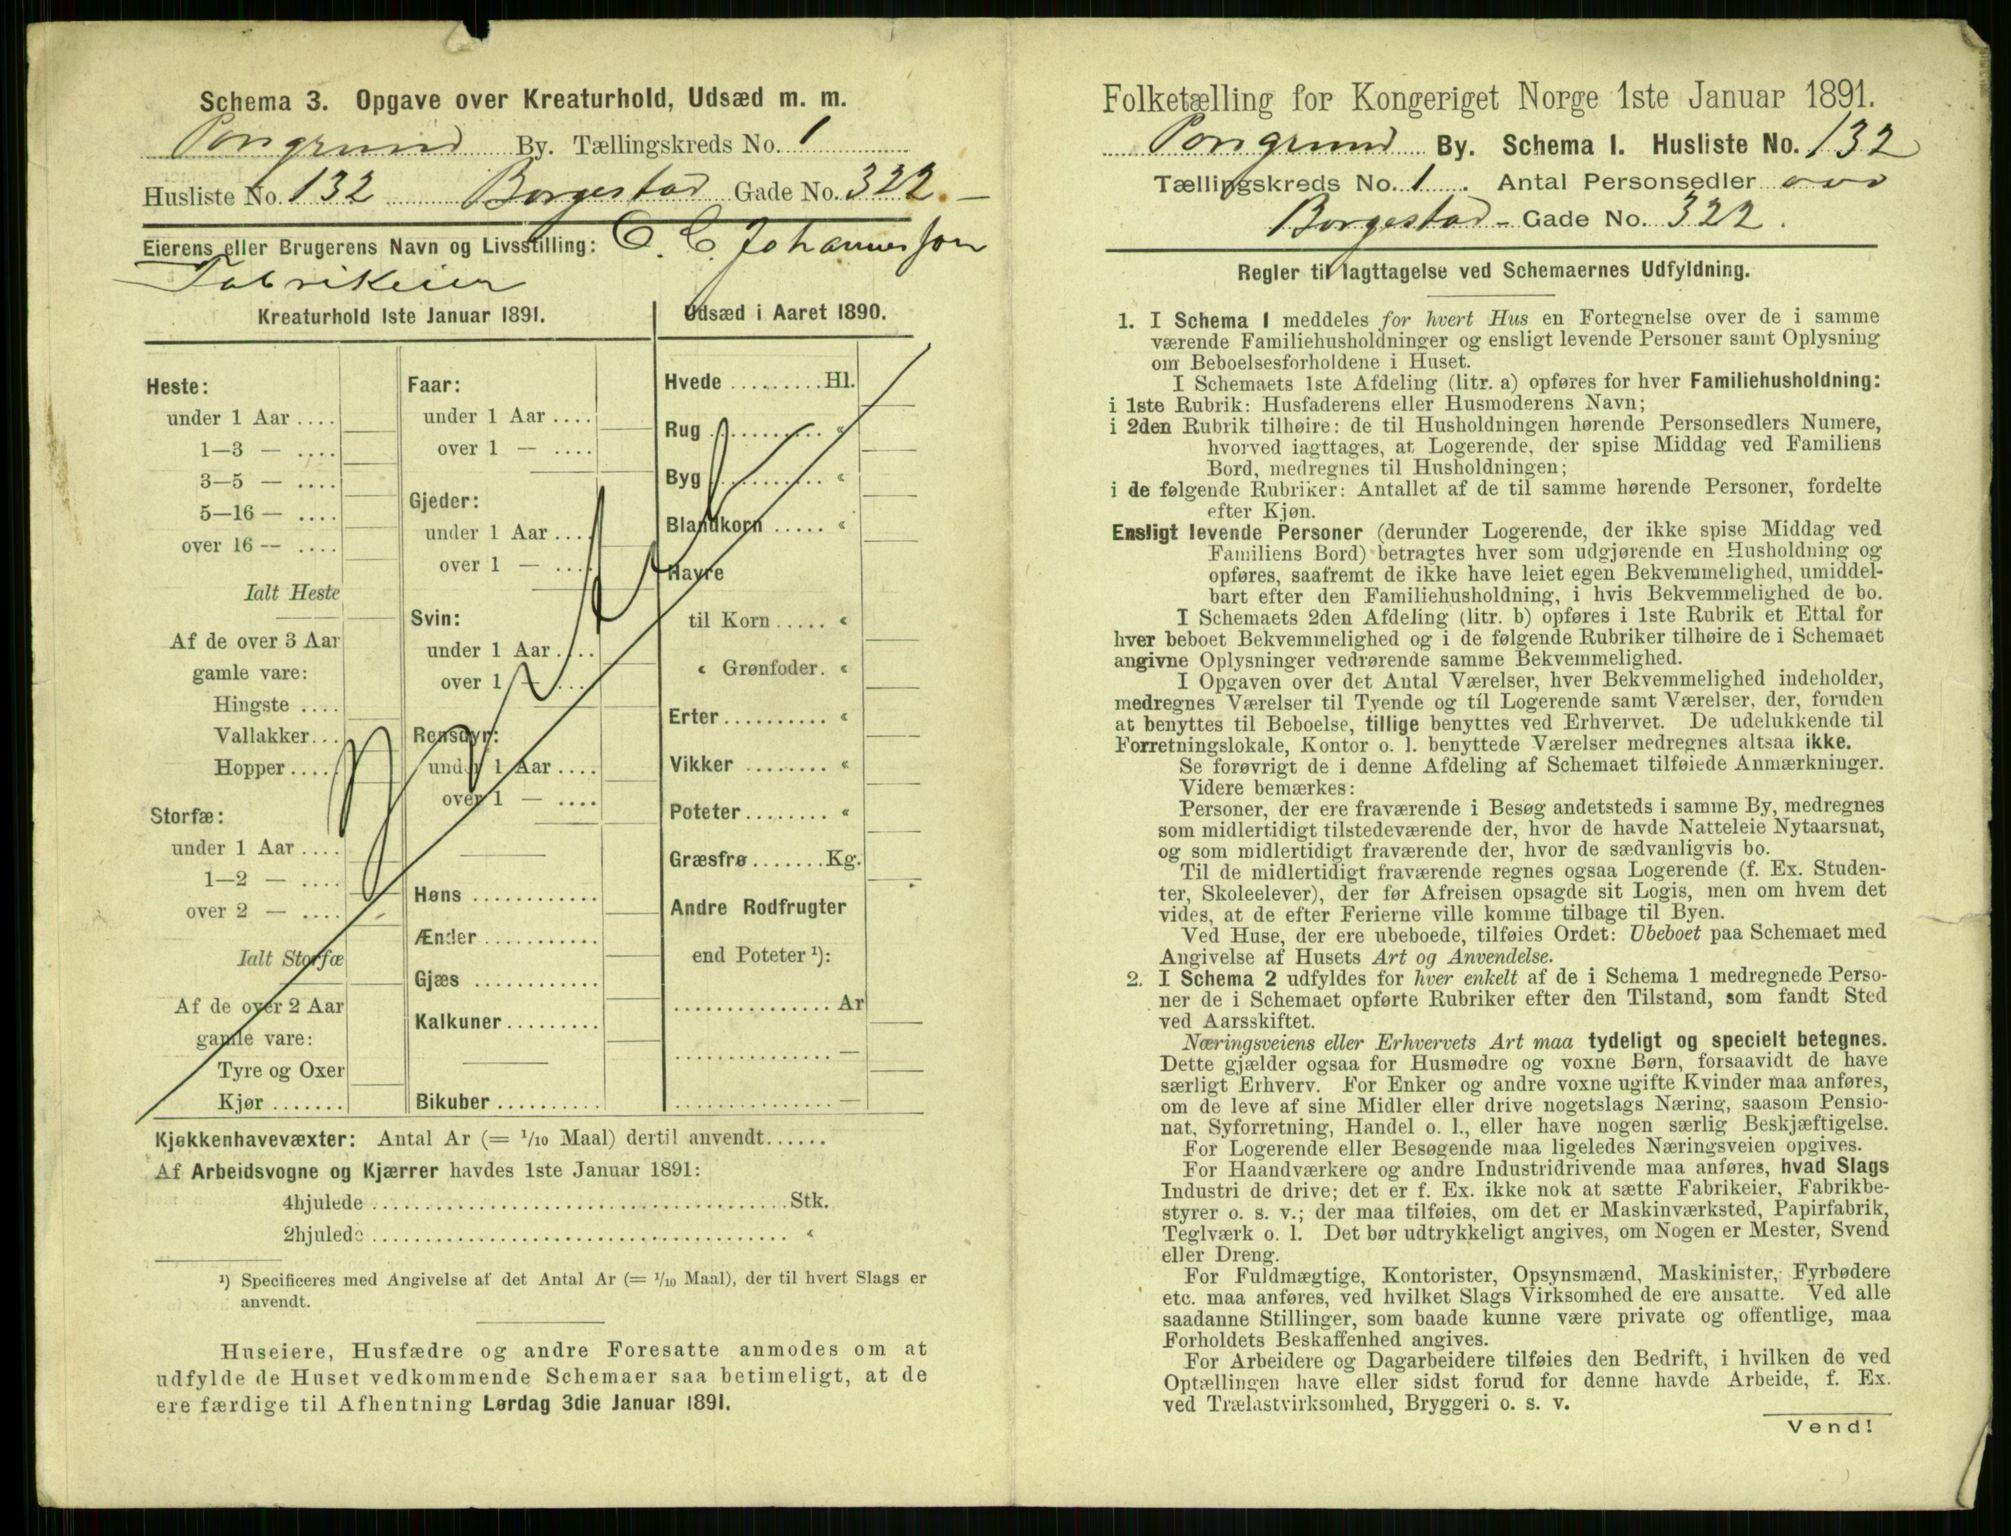 Schema 3. Opgave over Kreaturhold, Udsæd m. m.
Porsgrund By. Tællingskreds No. 1
Husliste No. 132 Borgestad Gade No. 322.
Eierens eller Brugerens Navn og Livsstilling: C. C. Johannesson
Fabrikeier
Kreaturhold 1ste Januar 1891.
Heste:
under 1 Aar ....
1—3 — ....
3—5 — ....
5—16 — ....
over 16 — ....
Ialt Heste
Af de over 3 Aar
gamle vare:
Hingste ....
Vallakker...
Hopper.....
Storfæ:
under 1 Aar ....
1—2 — ....
over 2 — ....
Ialt Storfæ
Af de over 2 Aar
gamle vare:
Tyre og Oxer
Kjør.......
Faar:
under 1 Aar ....
over 1 — ....
Gjeder:
under 1 Aar ....
over 1 — ....
Svin:
under 1 Aar ....
over 1 — ....
Rensdyr:
under 1 Aar ....
over 1 — ....
Høns ............
Ænder...........
Gjæs ............
Kalkuner.........
Bikuber..........
Udsæd i Aaret 1890.
Hvede .........Hl.
Rug ........... «
Byg ........... «
Blandkorn ..... «
Havre
til Korn ..... «
« Grønfoder. «
Erter.......... «
Vikker ........ «
Poteter........ «
Græsfrø.......Kg.
Andre Rodfrugter
end Poteter ¹):
...............Ar
............... —
............... —
Kjøkkenhavevæxter: Antal Ar (= 1/10 Maal) dertil anvendt......
Af Arbeidsvogne og Kjærrer havdes 1ste Januar 1891:
4hjulede ......................................Stk.
2hjulede ...................................... «
¹) Specificeres med Angivelse af det Antal Ar (= 1/10 Maal), der til hvert Slags er
anvendt.
Huseiere, Husfædre og andre Foresatte anmodes om at
udfylde de Huset vedkommende Schemaer saa betimeligt, at de
ere færdige til Afhentning Lørdag 3die Januar 1891.
Folketælling for Kongeriget Norge 1ste Januar 1891.
Porsgrund By. Schema 1. Husliste No. 132
Tællingskreds No. 1. Antal Personsedler
Borgestad - Gade No. 322.
Regler til Iagttagelse ved Schemaernes Udfyldning.
1. I Schema 1 meddeles for hvert Hus en Fortegnelse over de i samme
værende Familiehusholdninger og ensligt levende Personer samt Oplysning
om Beboelsesforholdene i Huset.
I Schemaets 1ste Afdeling (litr. a) opføres for hver Familiehusholdning:
i 1ste Rubrik: Husfaderens eller Husmoderens Navn;
i 2den Rubrik tilhøire: de til Husholdningen hørende Personsedlers Numere,
hvorved iagttages, at Logerende, der spise Middag ved Familiens
Bord, medregnes til Husholdningen;
i de følgende Rubriker: Antallet af de til samme hørende Personer, fordelte
efter Kjøn.
Ensligt levende Personer (derunder Logerende, der ikke spise Middag ved
Familiens Bord) betragtes hver som udgjørende en Husholdning og
opføres, saafremt de ikke have leiet egen Bekvemmelighed, umiddel-
bart efter den Familiehusholdning, i hvis Bekvemmelighed de bo.
I Schemaets 2den Afdeling (litr. b) opføres i 1ste Rubrik et Ettal for
hver beboet Bekvemmelighed og i de følgende Rubriker tilhøire de i Schemaet
angivne Oplysninger vedrørende samme Bekvemmelighed.
I Opgaven over det Antal Værelser, hver Bekvemmelighed indeholder,
medregnes Værelser til Tyende og til Logerende samt Værelser, der, foruden
at benyttes til Beboelse, tillige benyttes ved Erhvervet. De udelukkende til
Forretningslokale, Kontor o. l. benyttede Værelser medregnes altsaa ikke.
Se forøvrigt de i denne Afdeling af Schemaet tilføiede Anmærkninger.
Videre bemærkes:
Personer, der ere fraværende i Besøg andetsteds i samme By, medregnes
som midlertidigt tilstedeværende der, hvor de havde Natteleie Nytaarsnat,
og som midlertidigt fraværende der, hvor de sædvanligvis bo.
Til de midlertidigt fraværende regnes ogsaa Logerende (f. Ex. Studen-
ter, Skoleelever), der før Afreisen opsagde sit Logis, men om hvem det
vides, at de efter Ferierne ville komme tilbage til Byen.
Ved Huse, der ere ubeboede, tilføies Ordet: Ubeboet paa Schemaet med
Angivelse af Husets Art og Anvendelse.
2. I Schema 2 udfyldes for hver enkelt af de i Schema 1 medregnede Perso-
ner de i Schemaet opførte Rubriker efter den Tilstand, som fandt Sted
ved Aarsskiftet.
Næringsveiens eller Erhvervets Art maa tydeligt og specielt betegnes.
Dette gjælder ogsaa for Husmødre og voxne Børn, forsaavidt de have
særligt Erhverv. For Enker og andre voxne ugifte Kvinder maa anføres,
om de leve af sine Midler eller drive nogetslags Næring, saasom Pensio-
nat, Syforretning, Handel o. l., eller have nogen særlig Beskjæftigelse.
For Logerende eller Besøgende maa ligeledes Næringsveien opgives.
For Haandværkere og andre Industridrivende maa anføres, hvad Slags
Industri de drive; det er f. Ex. ikke nok at sætte Fabrikeier, Fabrikbe-
styrer o. s. v.; der maa tilføies, om det er Maskinværksted, Papirfabrik,
Teglværk o. l. Det bør udtrykkeligt angives, om Nogen er Mester, Svend
eller Dreng.
For Fuldmægtige, Kontorister, Opsynsmænd, Maskinister, Fyrbødere
etc. maa anføres, ved hvilket Slags Virksomhed de ere ansatte. Ved alle
saadanne Stillinger, som baade kunne være private og offentlige, maa
Forholdets Beskaffenhed angives.
For Arbeidere og Dagarbeidere tilføies den Bedrift, i hvilken de ved
Optællingen have eller sidst forud for denne havde Arbeide, f. Ex.
ved Trælastvirksomhed, Bryggeri o. s. v.
Vend!